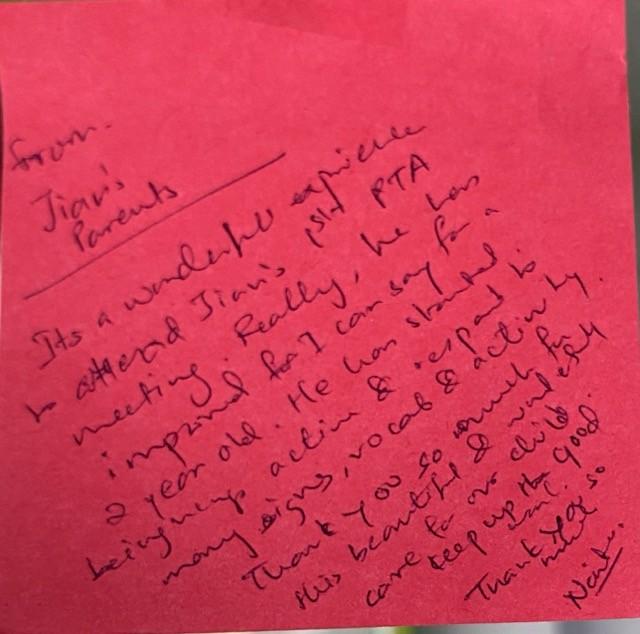 from.
Jian's
Parents
Its a wonderful expirience
to attend Jian's PTA
meeting. Really, he has
improved for I can say for a
2 year old. He has started
being active & respond to
many signs, vocab & activity.
Thank you so much for
this beautiful & wonderful
care for our child.
keep up the good
Thank you so
much